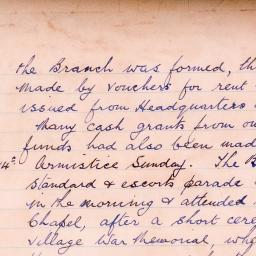 the Branch was formed, th
made by vouchers for rent
issued from Headquarters
Many cash grants from ou
funds had also been mad
4th Armistice Sunday. The B
Standard & escorts parade
in the morning & attended
Chapel, after a short cere
Village War Memorial, whe